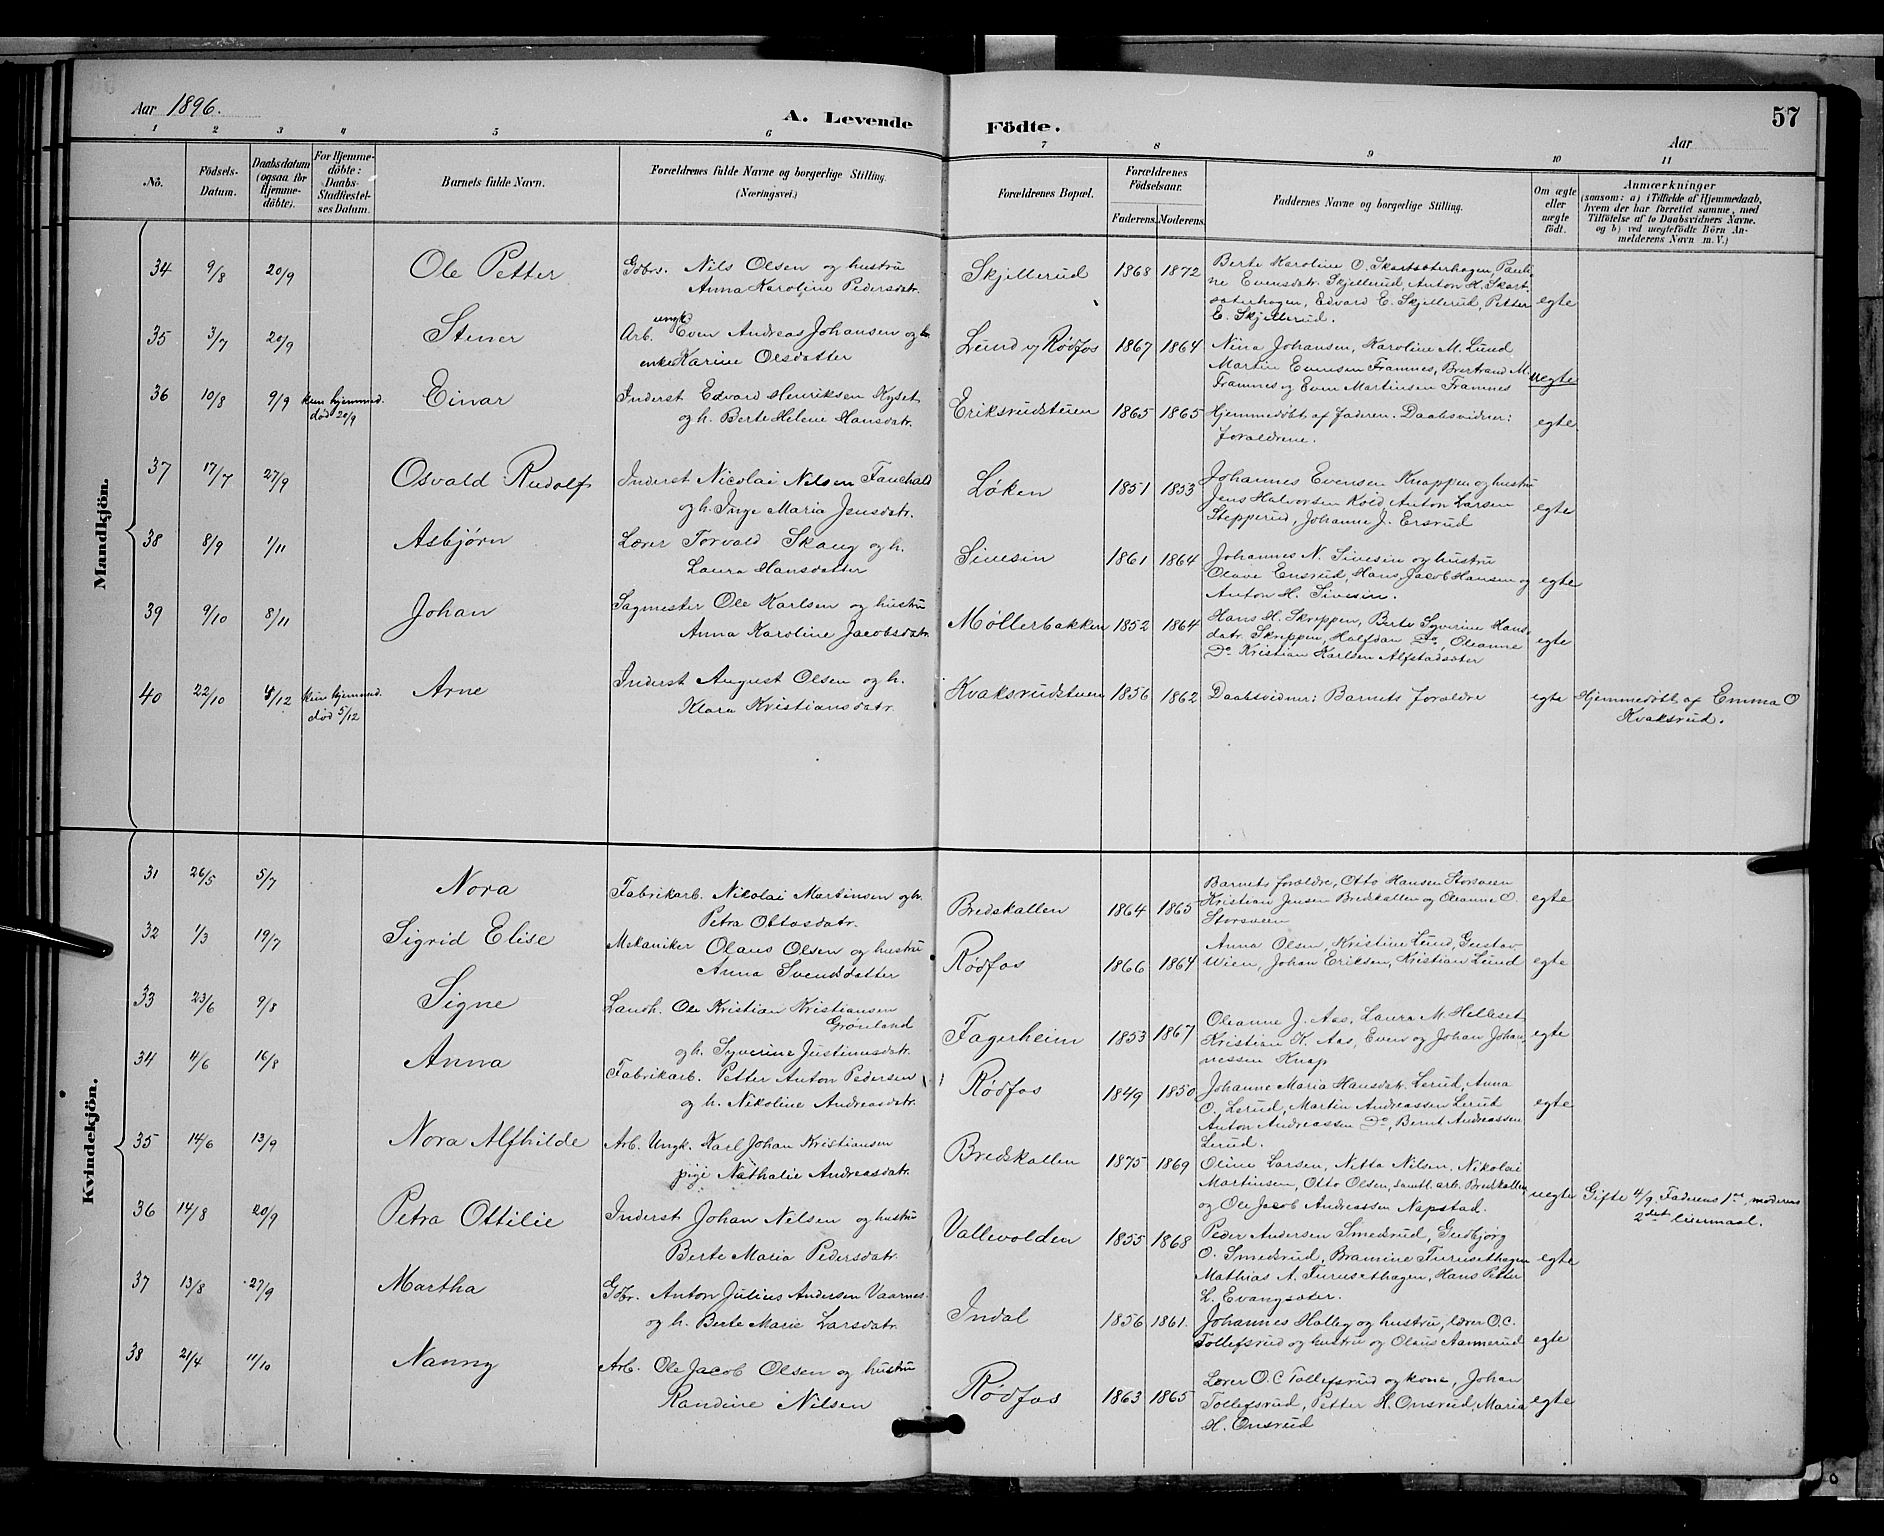 Aar 1896.
A. Levende Födte.
Aar
57
1 2 3 4 5 6 7 8 9 10 11
No.
Födsels-Datum.
Daabsdatum (ogsaa for Hjemme-döbte).
For Hjemme-döbte: Daabs-Stadfæstel-ses Datum.
Barnets fulde Navn.
Forældrenes fulde Navne og borgerlige Stilling. (Næringsvei.)
Forældrenes Bopæl.
Forældrenes Födselsaar.
Faderens. Moderens.
Faddernes Navne og borgerlige Stilling.
Om ægte eller uægte födt.
Anmærkninger
(saasom: a) i Tilfælde af Hjemmedaab,
hvem der har forrettet samme, med
Tilföielse af to Daabsvidners Navne.
og b) ved uægtefödte Börn An-
melderens Navn m. V.)
Mandkjön.
34 9/8 20/9 Ole Petter Gdbrs. Nils Olsen og hustru
Anna Karoline Pedersdatr.
Skjellerud 1868 1872
Berte Karoline O. Skartsæterhagen, Pauli-
ne Evensdatr. Skjellerud, Anton H. Skart-
sæterhagen, Edvard E. Skjellerud, Petter
E. Skjellerud.
egte
35 3/7 20/9 Stener Arb. ungk. Even Andreas Johansen og
enke Karine Olsdatter
Lund v/ Rødfos 1867 1864
Nina Johansen, Karoline M. Lund
Martin Evensen Framnes, Bertrand M.
Framnes og Even Martinsen Framnes
uegte
36 10/8 9/9 kun hjemmed. død 20/9 Einar Inderst Edvard Henriksen Kyset
og h. Berte Helene Hansdatr.
Eriksrudstuen 1865 1865
Hjemmedøbt af faderen. Daabsvidner:
forældrene.
egte
37 17/7 27/9 Osvald Rudolf Inderst Nicolai Nilsen Fauchald
og h. Inge Maria Jensdatr.
Løken 1851 1853
Johannes Evensen Knappen og hustru
Jens Halvorsen Kold, Anton Larsen
Stepperud, Johanne J. Ersrud
egte
38 8/9 1/11 Asbjørn Lærer Torvald Skaug og h.
Laura Hansdatter
Sivesin 1861 1864
Johannes N. Sivesin og hustru
Olave Ensrud, Hans Jacob Hansen og
Anton H. Sivesin.
egte
39 9/10 8/11 Johan Sagmester Ole Karlsen og hustru
Anna Karoline Jacobsdatr.
Møllerbakken 1852 1864
Hans H. Skreppen, Berte Syverine Hans-
datr. Skreppen, Halfdan Do, Oleanne
Do Kristian Karlsen Alfstadsæter
egte
40 22/10 4/12 kun hjemmed. død 5/12 Arne Inderst August Olsen og h.
Klara Kristiansdatr.
Kvaksrudstuen 1856 1862
Daabsvidner: Barnets forældre
egte
Hjemmedøbt af Emma O
Kvaksrud.
Kvindekjön.
31 26/5 5/7 Nora Fabrikarb. Nikolai Martinsen og h.
Petra Ottosdatr.
Bredskallen 1864 1865
Barnets forældre, Otto Hansen Storsveen
Kristian Jensen Bredskallen og Oleanne O.
Storsveen
egte
32 1/3 19/7 Sigrid Elise Mekaniker Olaus Olsen og hustru
Anna Svendsdatter
Rødfos 1866 1864
Anna Olsen, Kristine Lund, Gustav
Wien, Johan Eriksen, Kristian Lund
egte
33 23/6 9/8 Signe Landh. Ole Kristian Kristiansen
Grønland
og h. Syverine Justinusdatr.
Fagerheim 1853 1867
Oleanne J. Aas, Laura M. Helleset
Kristian K. Aas, Even og Johan Johan-
nessen Knap
egte
34 4/6 16/8 Anna Fabrikarb. Petter Anton Pedersen
og h. Nikoline Andreasdatr.
Rødfos 1849 1850
Johanne Maria Hansdatr. Lerud, Anna
O. Lerud, Martin Andreassen Lerud
Anton Andreassen Do, Bernt Andreassen
Lerud.
egte
35 14/6 13/9 Nora Alfhilde Arb. Ungk. Karl Johan Kristiansen
pige Nathalie Andreasdatr.
Bredskallen 1875 1869
Oline Larsen, Nitta Nilsen, Nikolai
Martinsen, Otto Olsen, samtl. arb. Bredskallen
og Ole Jacob Andreassen Napstad.
uegte
Gifte 4/9. Faderens 1ste, moderens
2det leiermaal.
36 14/8 20/9 Petra Ottilie Inderst Johan Nilsen og hustru
Berte Maria Pedersdatr.
Vallevolden 1855 1868
Peder Andersen Smedsrud, Gudbjørg
O. Smedsrud, Bramine Furusethagen
Mathias A. Furusethagen, Hans Petter
L. Evangsæter.
egte
37 13/8 27/9 Martha Gdbr. Anton Julius Andersen Vaarnes.
og h. Berte Marie Larsdatr.
Indal 1856 1861.
Johannes Halby og hustru, lærer O.C.
Tollefsrud og hustru og Olaus Aannerud
egte
38 21/4 11/10 Nanny Arb. Ole Jacob Olsen og hustru
Randine Nilsen
Rødfos 1863 1865
Lærer O.C Tollefsrud og kone, Johan
Tollefsrud, Petter H. Onsrud, Maria
H. Onsrud
egte